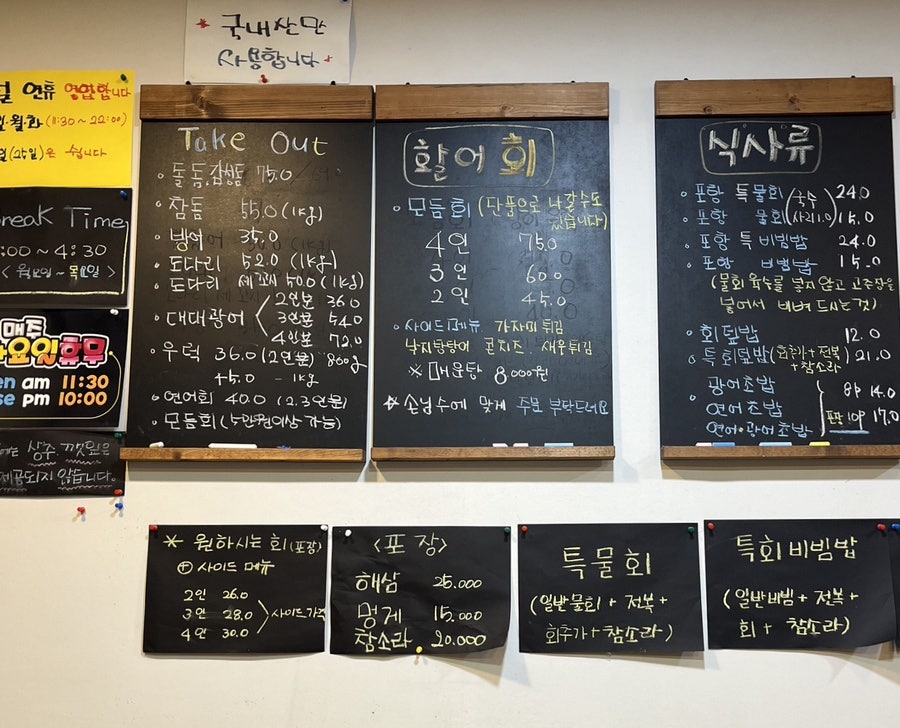 * 국내산만
사용합니다 *
연휴 영업합니다
일·월·화 (11:30 ~ 22:00)
(25일)은 쉽니다
Break Time
:00 ~ 4:30
< 월요일 ~ 목요일 >
매주
요일휴무
en am 11:30
se pm 10:00
는 상추, 깻잎은
제공되지 않습니다.
Take Out
돌돔,감성돔 75.0
참돔 55.0 (1kg)
방어 35.0
도다리 52.0 (1kg)
도다리 세꼬시 50.0 (1kg)
대대광어 2인분 36.0
3인분 54.0
4인분 72.0
우럭 36.0 (2인분) 800g
45.0 - 1kg
연어회 40.0 (2.3인분)
모듬회 (5만원이상 가능)
활어회
모듬회 (단품으로 나갈수도 있습니다)
4인 75.0
3인 60.0
2인 45.0
사이드메뉴 가자미튀김
낙지탕탕이 콘치즈 새우튀김
※ 매운탕 8000원
☆ 손님수에 맞게 주문 부탁드려요
식사류
포항 특물회 (국수 24.0
포항 물회 사리1.0) 15.0
포항 특비빔밥 24.0
포항 비빔밥 15.0
(물회 육수를 넣지않고 고추장을
넣어서 비벼 드시는것)
회덮밥 12.0
특회덮밥 (회추가+전복+참소라) 21.0
광어초밥 8P 14.0
연어초밥
연어·광어초밥 10P 17.0
* 원하시는 회 (포장)
⊕ 사이드 메뉴
2인 26.0
3인 28.0 > 사이드가격
4인 30.0
<포장>
해삼 25.000
멍게 15.000
참소라 20.000
특물회
(일반물회 + 전복 +
회추가 + 참소라)
특회비빔밥
(일반비빔 + 전복 +
회 + 참소라)